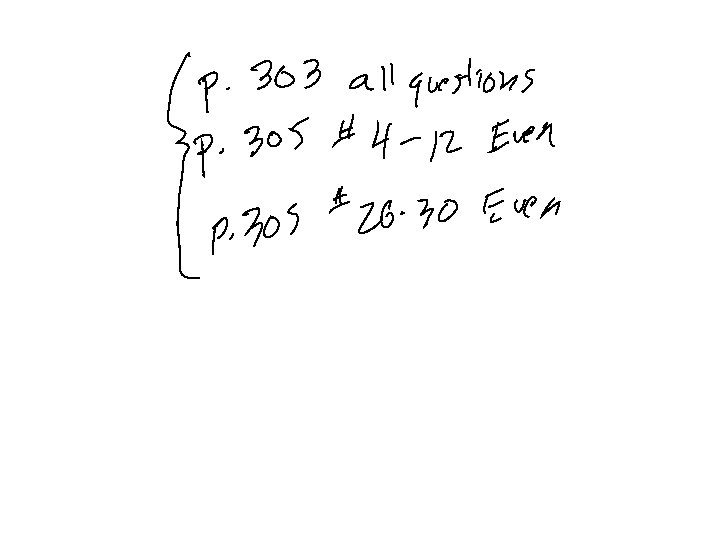 p. 303 all questions
p. 305 # 4-12 Even
p. 305 # 26-30 Even